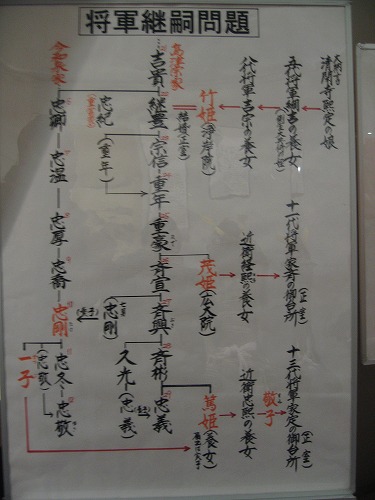 将軍継嗣問題
大納言
清閑寺熙定の娘
五代将軍綱吉の養女
八代将軍吉宗の養女
竹姫(浄岸院)
結婚(正室)
島津宗家
吉貴
継豊
宗信
重年
重豪
斉宣
斉興
斉彬
忠義
忠紀
(重富家)
(重年)
今和泉家
忠卿
忠温
忠厚
忠喬
忠剛
(忠剛)
七男
(養子)
久光(忠義)
忠冬
忠敬
(忠敬)
一子
十一代将軍家斉の御台所
(正室)
近衛経熙の養女
茂姫
(広大院)
十三代将軍家定の御台所
(正室)
敬子
近衛忠熙の養女
篤姫
(養女)